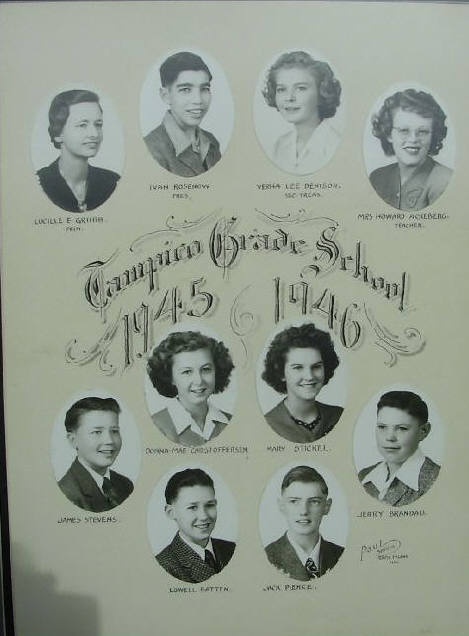 LUCILLE E GRIBBIN.
PRIN.
IVAN ROSENOW
PRES.
VERNA LEE DENISON.
SEC-TREAS.
MRS HOWARD ACKEBERG.
TEACHER.
Tampico Grade School
1945 1946
DONNA-MAE CHRISTOFFERSEN
MARY STICKEL
JAMES STEVENS.
JERRY BRANDAU.
LOWELL PATTEN.
JACK PIERCE.
Paul